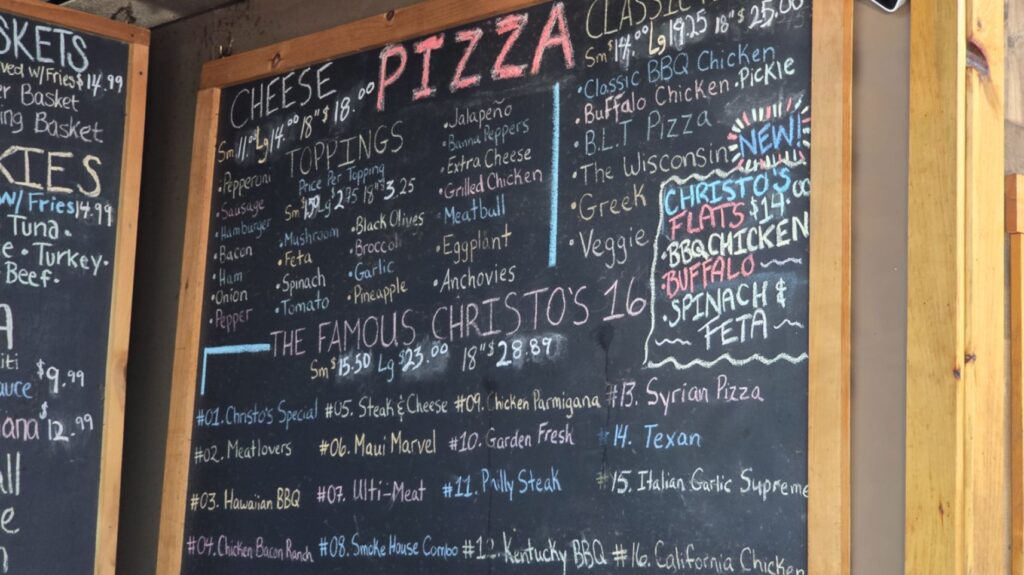 SKETS
ved w/Fries $14.99
er Basket
ing Basket
KIES
w/ Fries 14.99
Tuna.
e · Turkey.
Beef.
A
iti $9.99
auce
ana $12.99
all
e
PIZZA
CHEESE
Lg 14.00 18"$ 18.00
TOPPINGS
Price Per Topping
Lg $2.95 18"$ 3.25
·Pepperoni
·Sausage
·Hamburger
·Bacon
·Ham
·Onion
·Pepper
·Mushroom
·Feta
·Spinach
·Tomato
·Black Olives
·Broccoli
·Garlic
·Pineapple
·Jalapeño
·Banna Peppers
·Extra Cheese
·Grilled Chicken
·Meatball
·Eggplant
·Anchovies
Sm $14.00 Lg 19.25 18"$ 25.00
·Classic BBQ Chicken
·Buffalo Chicken ·Pickie
·B.L.T Pizza
·The Wisconsin
·Greek
·Veggie
NEW!
CHRISTO'S
FLATS $14.00
·BBQ CHICKEN
·BUFFALO
·SPINACH &
FETA
THE FAMOUS CHRISTO'S 16
Sm $15.50 Lg $23.00 18"$ 28.89
#01. Christo's Special
#02. Meatlovers
#03. Hawaiian BBQ
#04. Chicken Bacon Ranch
#05. Steak & Cheese
#06. Maui Marvel
#07. Ulti-Meat
#08. Smoke House Combo
#09. Chicken Parmigana
#10. Garden Fresh
#11. Philly Steak
#12. Kentucky BBQ
#13. Syrian Pizza
#14. Texan
#15. Italian Garlic Supreme
#16. California Chicken